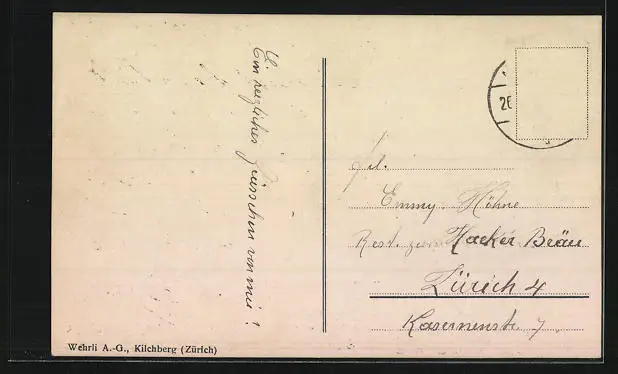 Ein herzliches Grüsschen von mir!
26
Frl.
Emmy Höhne
Rest. zum Hacker Bräu
Zürich 4
Kasernenstr. 7
Wehrli A.-G., Kilchberg (Zürich)